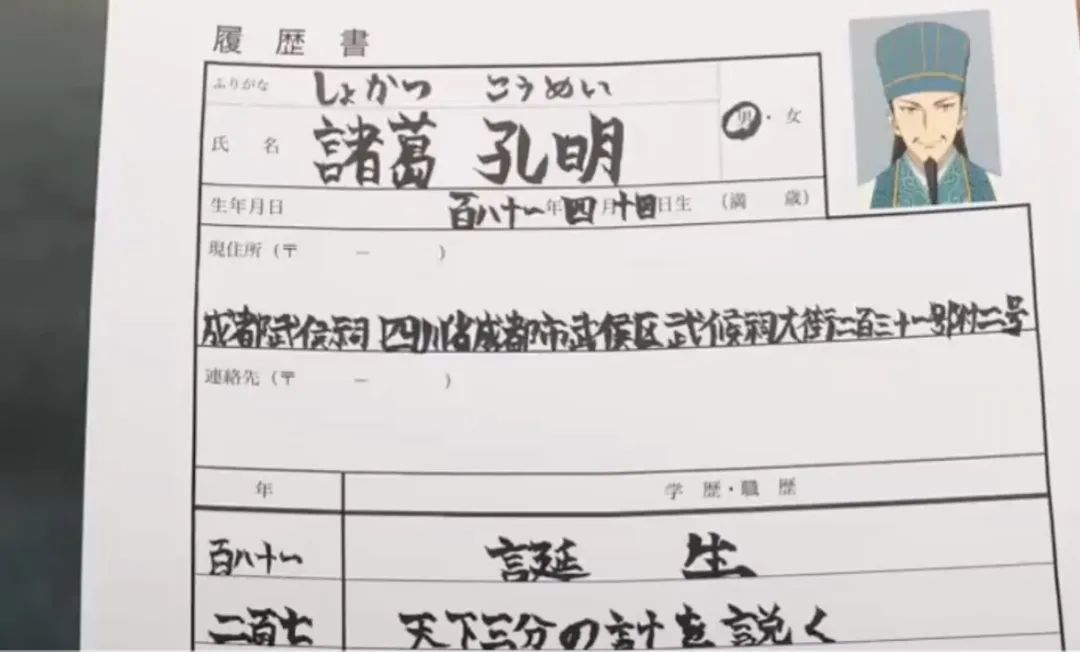 履歴書
ふりがな しょかつ こうめい
氏 名 諸葛 孔明 男・女
生年月日 百八十一年 四月 十四日生 (満 歳)
現住所(〒 − )
成都武侯祠 四川省成都市武侯区武候祠大街二百三十一号附二号
連絡先(〒 − )
年 学 歴・職 歴
百八十一 誕 生
二百七 天下三分の計を説く